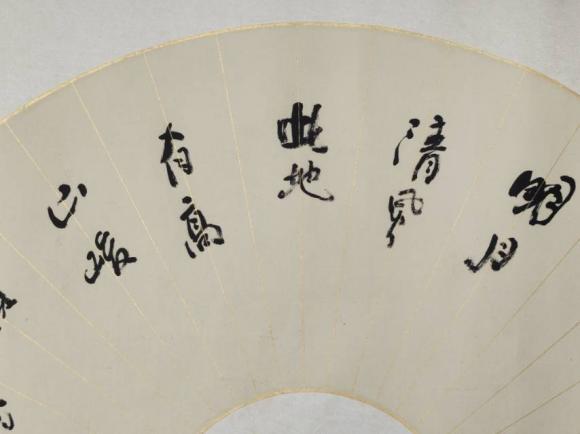 明月
清風
此地
有高
山峻